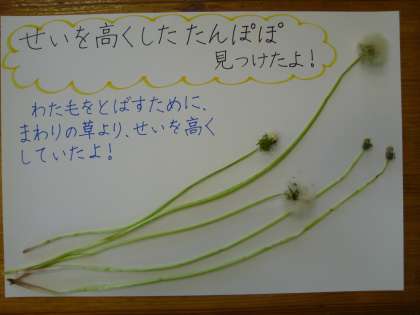 せいを高くしたたんぽぽ
見つけたよ!
わた毛をとばすために、
まわりの草より、せいを高く
していたよ!